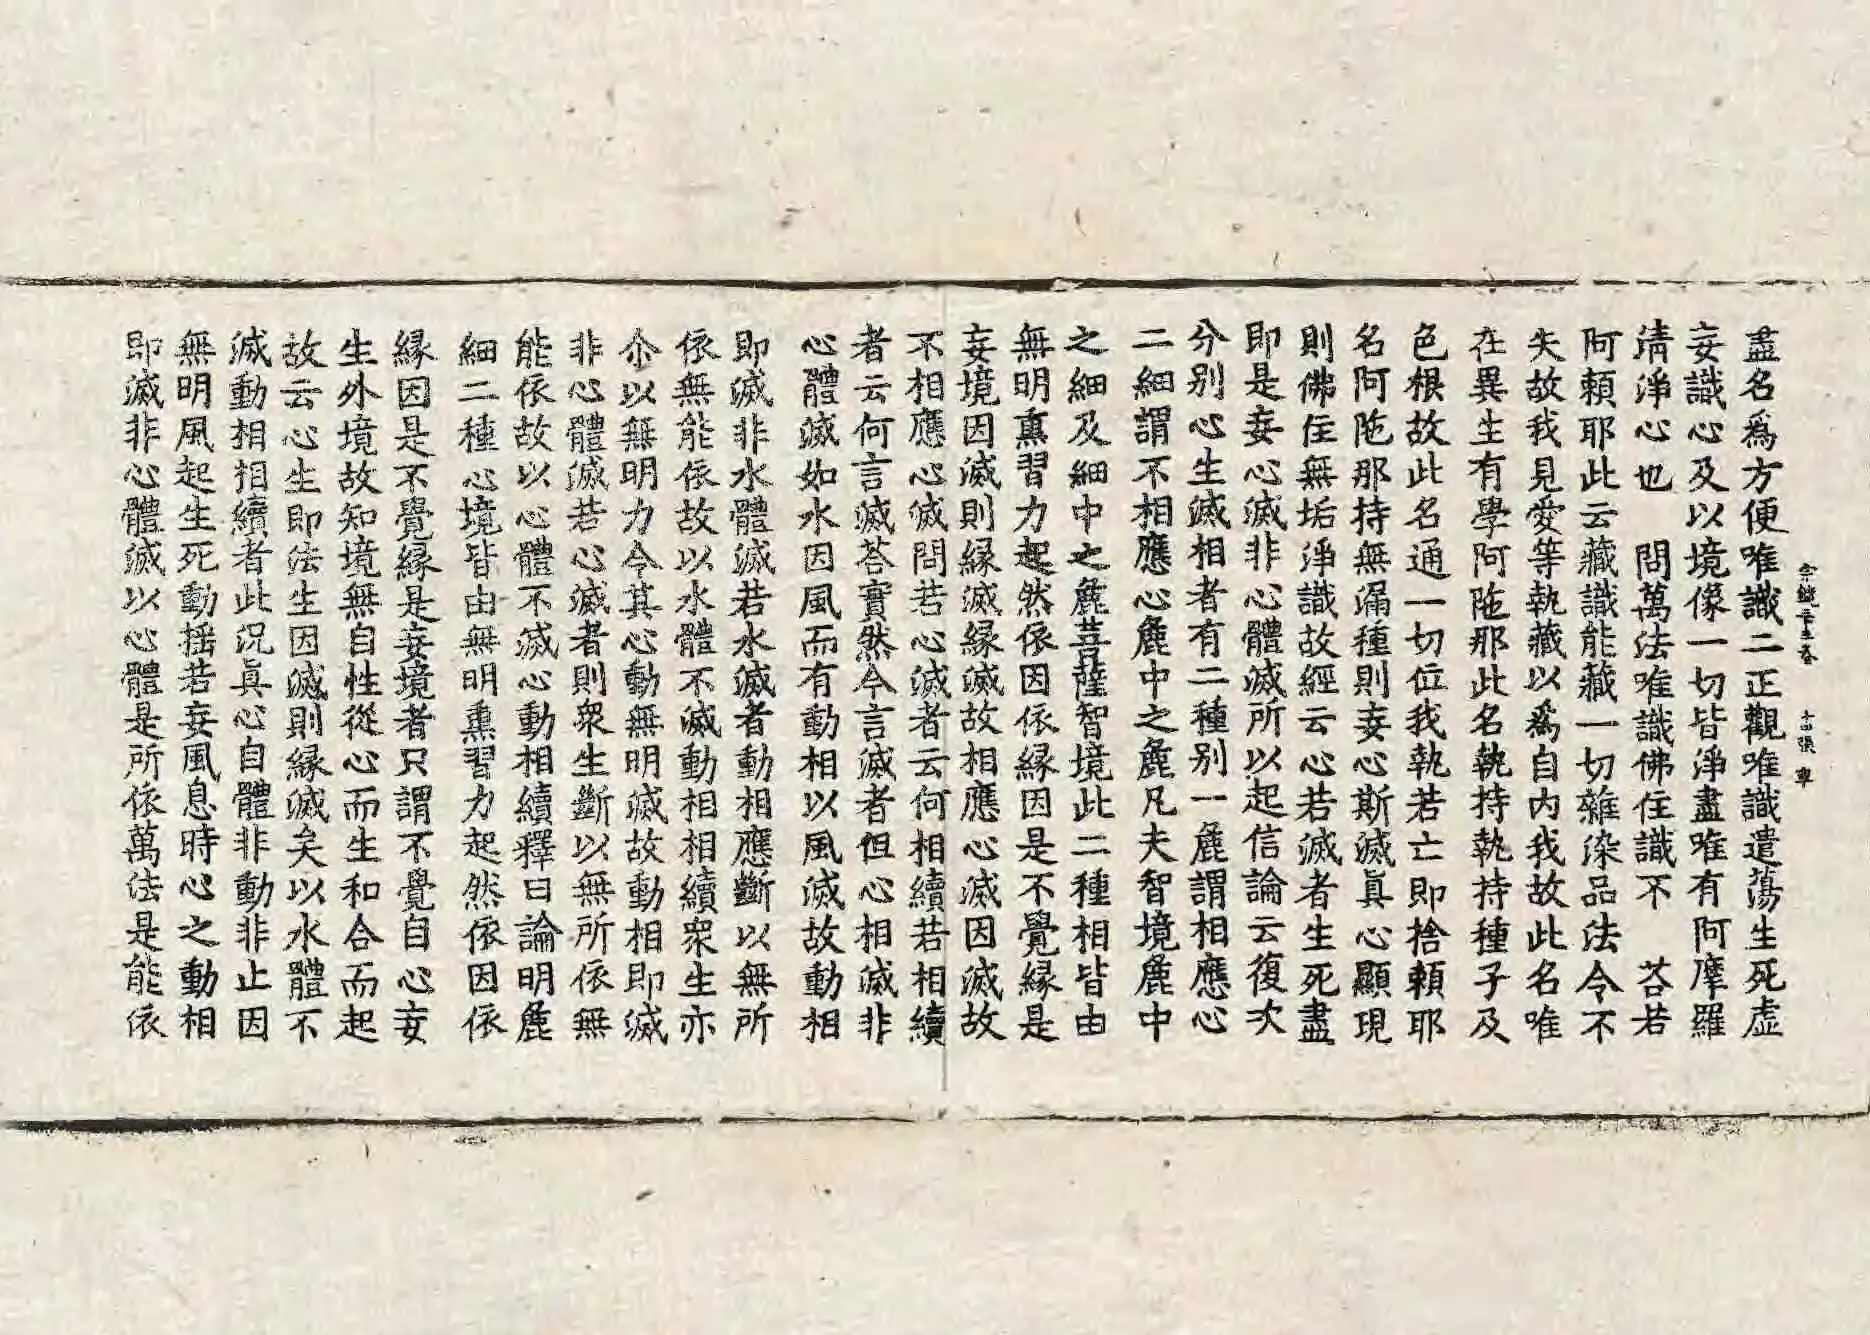 宗鏡 卷 十四張 車
盡名爲方便唯識二正觀唯識遣蕩生死虛
妄識心及以境像一切皆淨盡唯有阿摩羅
清淨心也 問萬法唯識佛住識不 荅若
阿賴耶此云藏識能藏一切雜染品法令不
失故我見愛等執藏以爲自内我故此名唯
在異生有學阿陁那此名執持執持種子及
色根故此名通一切位我執若亡即捨賴耶
名阿陁那持無漏種則妄心斯滅眞心顯現
則佛住無垢淨識故經云心若滅者生死盡
即是妄心滅非心體滅所以起信論云復次
分别心生滅相者有二種别一麁謂相應心
二細謂不相應心麁中之麁凡夫智境麁中
之細及細中之麁菩薩智境此二種相皆由
無明熏習力起然依因依緣因是不覺緣是
妄境因滅則緣滅緣滅故相應心滅因滅故
不相應心滅問若心滅者云何相續若相續
者云何言滅荅實然今言滅者但心相滅非
心體滅如水因風而有動相以風滅故動相
即滅非水體滅若水滅者動相應斷以無所
依無能依故以水體不滅動相相續衆生亦
尒以無明力令其心動無明滅故動相即滅
非心體滅若心滅者則衆生斷以無所依無
能依故以心體不滅心動相續釋曰論明麁
細二種心境皆由無明熏習力起然依因依
緣因是不覺緣是妄境者只謂不覺自心妄
生外境故知境無自性從心而生和合而起
故云心生即法生因滅則緣滅矣以水體不
滅動相相續者此況眞心自體非動非止因
無明風起生死動搖若妄風息時心之動相
即滅非心體滅以心體是所依萬法是能依